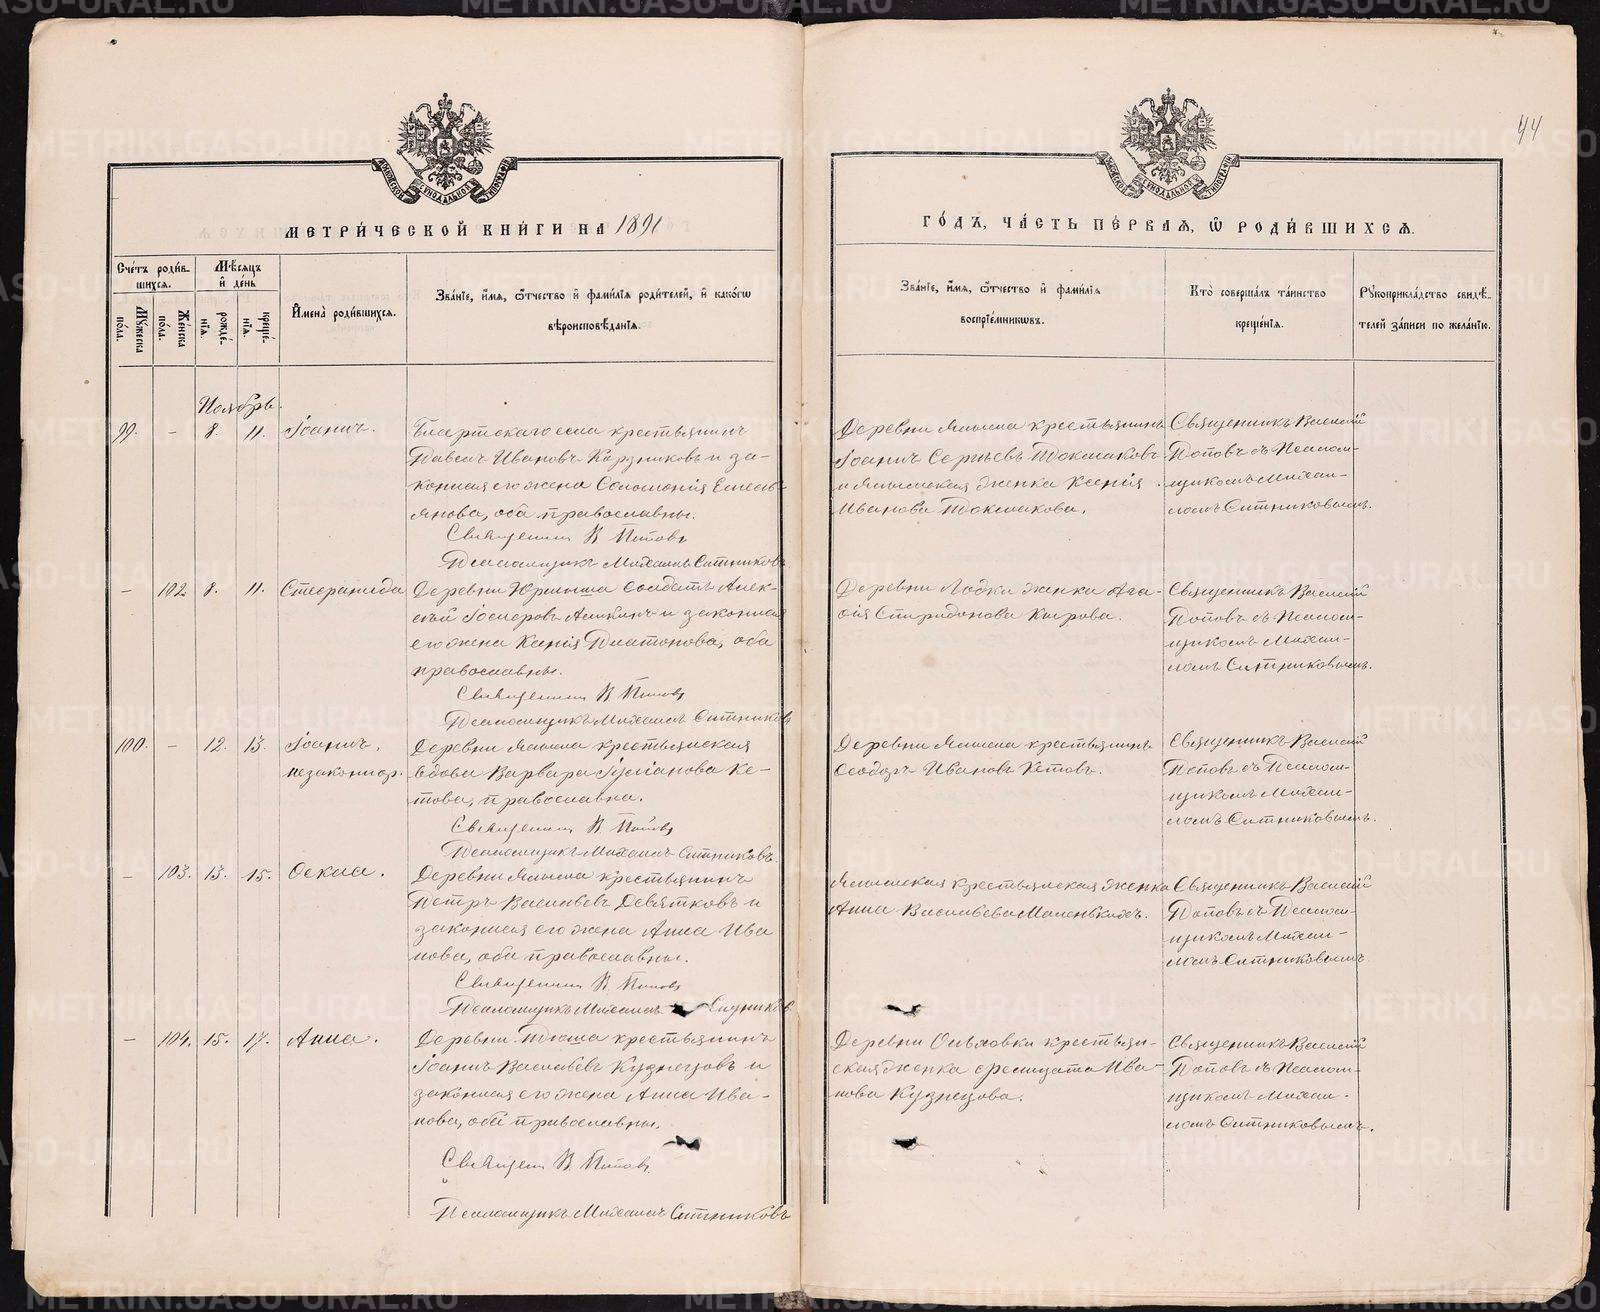 44
МОСКОВСКОЙ СѴНОДАЛЬНОЙ ТИПОГРАФІИ
МОСКОВСКОЙ СѴНОДАЛЬНОЙ ТИПОГРАФІИ
МЕТРИ́ЧЕСКОЙ КНИ́ГИ НА 1891
ГО́ДЪ, ЧА́СТЬ ПЕ́РВАЯ, Ѡ РОДИ́ВШИХСЯ.
Сче́тъ роди́в-
шихся.
Му́жеска по́ла.
Же́нска по́ла.
Мѣ́сяцъ
и҆ де́нь
рожде́-
нія.
креще́-
нія.
И҆мена̀ роди́вшихся.
Зва́ніе, и҆́мя, ѻ҆́тчество и҆ фами́лія роди́телей, и҆ како́гѡ
вѣроисповѣ́данія.
Зва́ніе, и҆́мя, ѻ҆́тчество и҆ фами́лія
воспріе́мниковъ.
Кто̀ соверша́лъ та́инство
креще́нія.
Рꙋкоприкла́дство свидѣ́-
телей за́писи по жела́нію.
Ноябрь.
99. - 8. 11. Іоаннъ.
Бисертскаго села крестьянинъ
Павелъ Ивановъ Корзниковъ и за-
конная его жена Соломонія Емель-
янова, оба православны.
Священникъ В Поповъ
Псаломщикъ Михаилъ Ситниковъ
Деревни Аяыша крестьянинъ
Іоаннъ Сергѣевъ Токмаковъ
женка Ксенія
Иванова Токмакова.
Священникъ Василій
Поповъ съ Псалом-
щикомъ Михаи-
ломъ Ситниковымъ.
- 102 8. 11. Стефанида
Деревни Юрмыша солдатъ Алек-
сѣй и законная
его жена Ксенія Платонова, оба
православны.
Священникъ В Поповъ
Псаломщикъ Михаилъ Ситниковъ
Деревни женка Ага-
фія Спиридонова Кырова.
Священникъ Василій
Поповъ съ Псалом-
щикомъ Михаи-
ломъ Ситниковымъ.
100. - 12. 13. Іоаннъ,
незаконнор.
Деревни крестьянская
вдова Варвара Іуліанова Ке-
това, православна.
Священникъ В Поповъ
Псаломщикъ Михаилъ Ситниковъ.
Деревни крестьянинъ
Ѳеодоръ Ивановъ Кетовъ.
Священникъ Василій
Поповъ съ Псалом-
щикомъ Михаи-
ломъ Ситниковымъ.
- 103. 13. 15. Ѳекла.
Деревни крестьянинъ
Петръ Васильевъ Девятковъ и
законная его жена Анна Ива
нова, оба православны.
Священникъ В Поповъ
Псаломщикъ Михаилъ Ситниковъ
крестьянская женка
Анна Васильева Маленькихъ.
Священникъ Василій
Поповъ съ Псалом-
щикомъ Михаи-
ломъ Ситниковымъ.
- 104. 15. 17. Анна.
Деревни крестьянинъ
Іоаннъ Васильевъ Кузнецовъ и
законная его жена Анна Ива-
нова, оба православны.
Священ В Поповъ
Псаломщикъ Михаилъ Ситниковъ
Деревни Ольховки крестьян-
ская женка Ива-
нова Кузнецова.
Священникъ Василій
Поповъ съ Псалом-
щикомъ Михаи-
ломъ Ситниковымъ.
METRIKI.GASO-URAL.RU